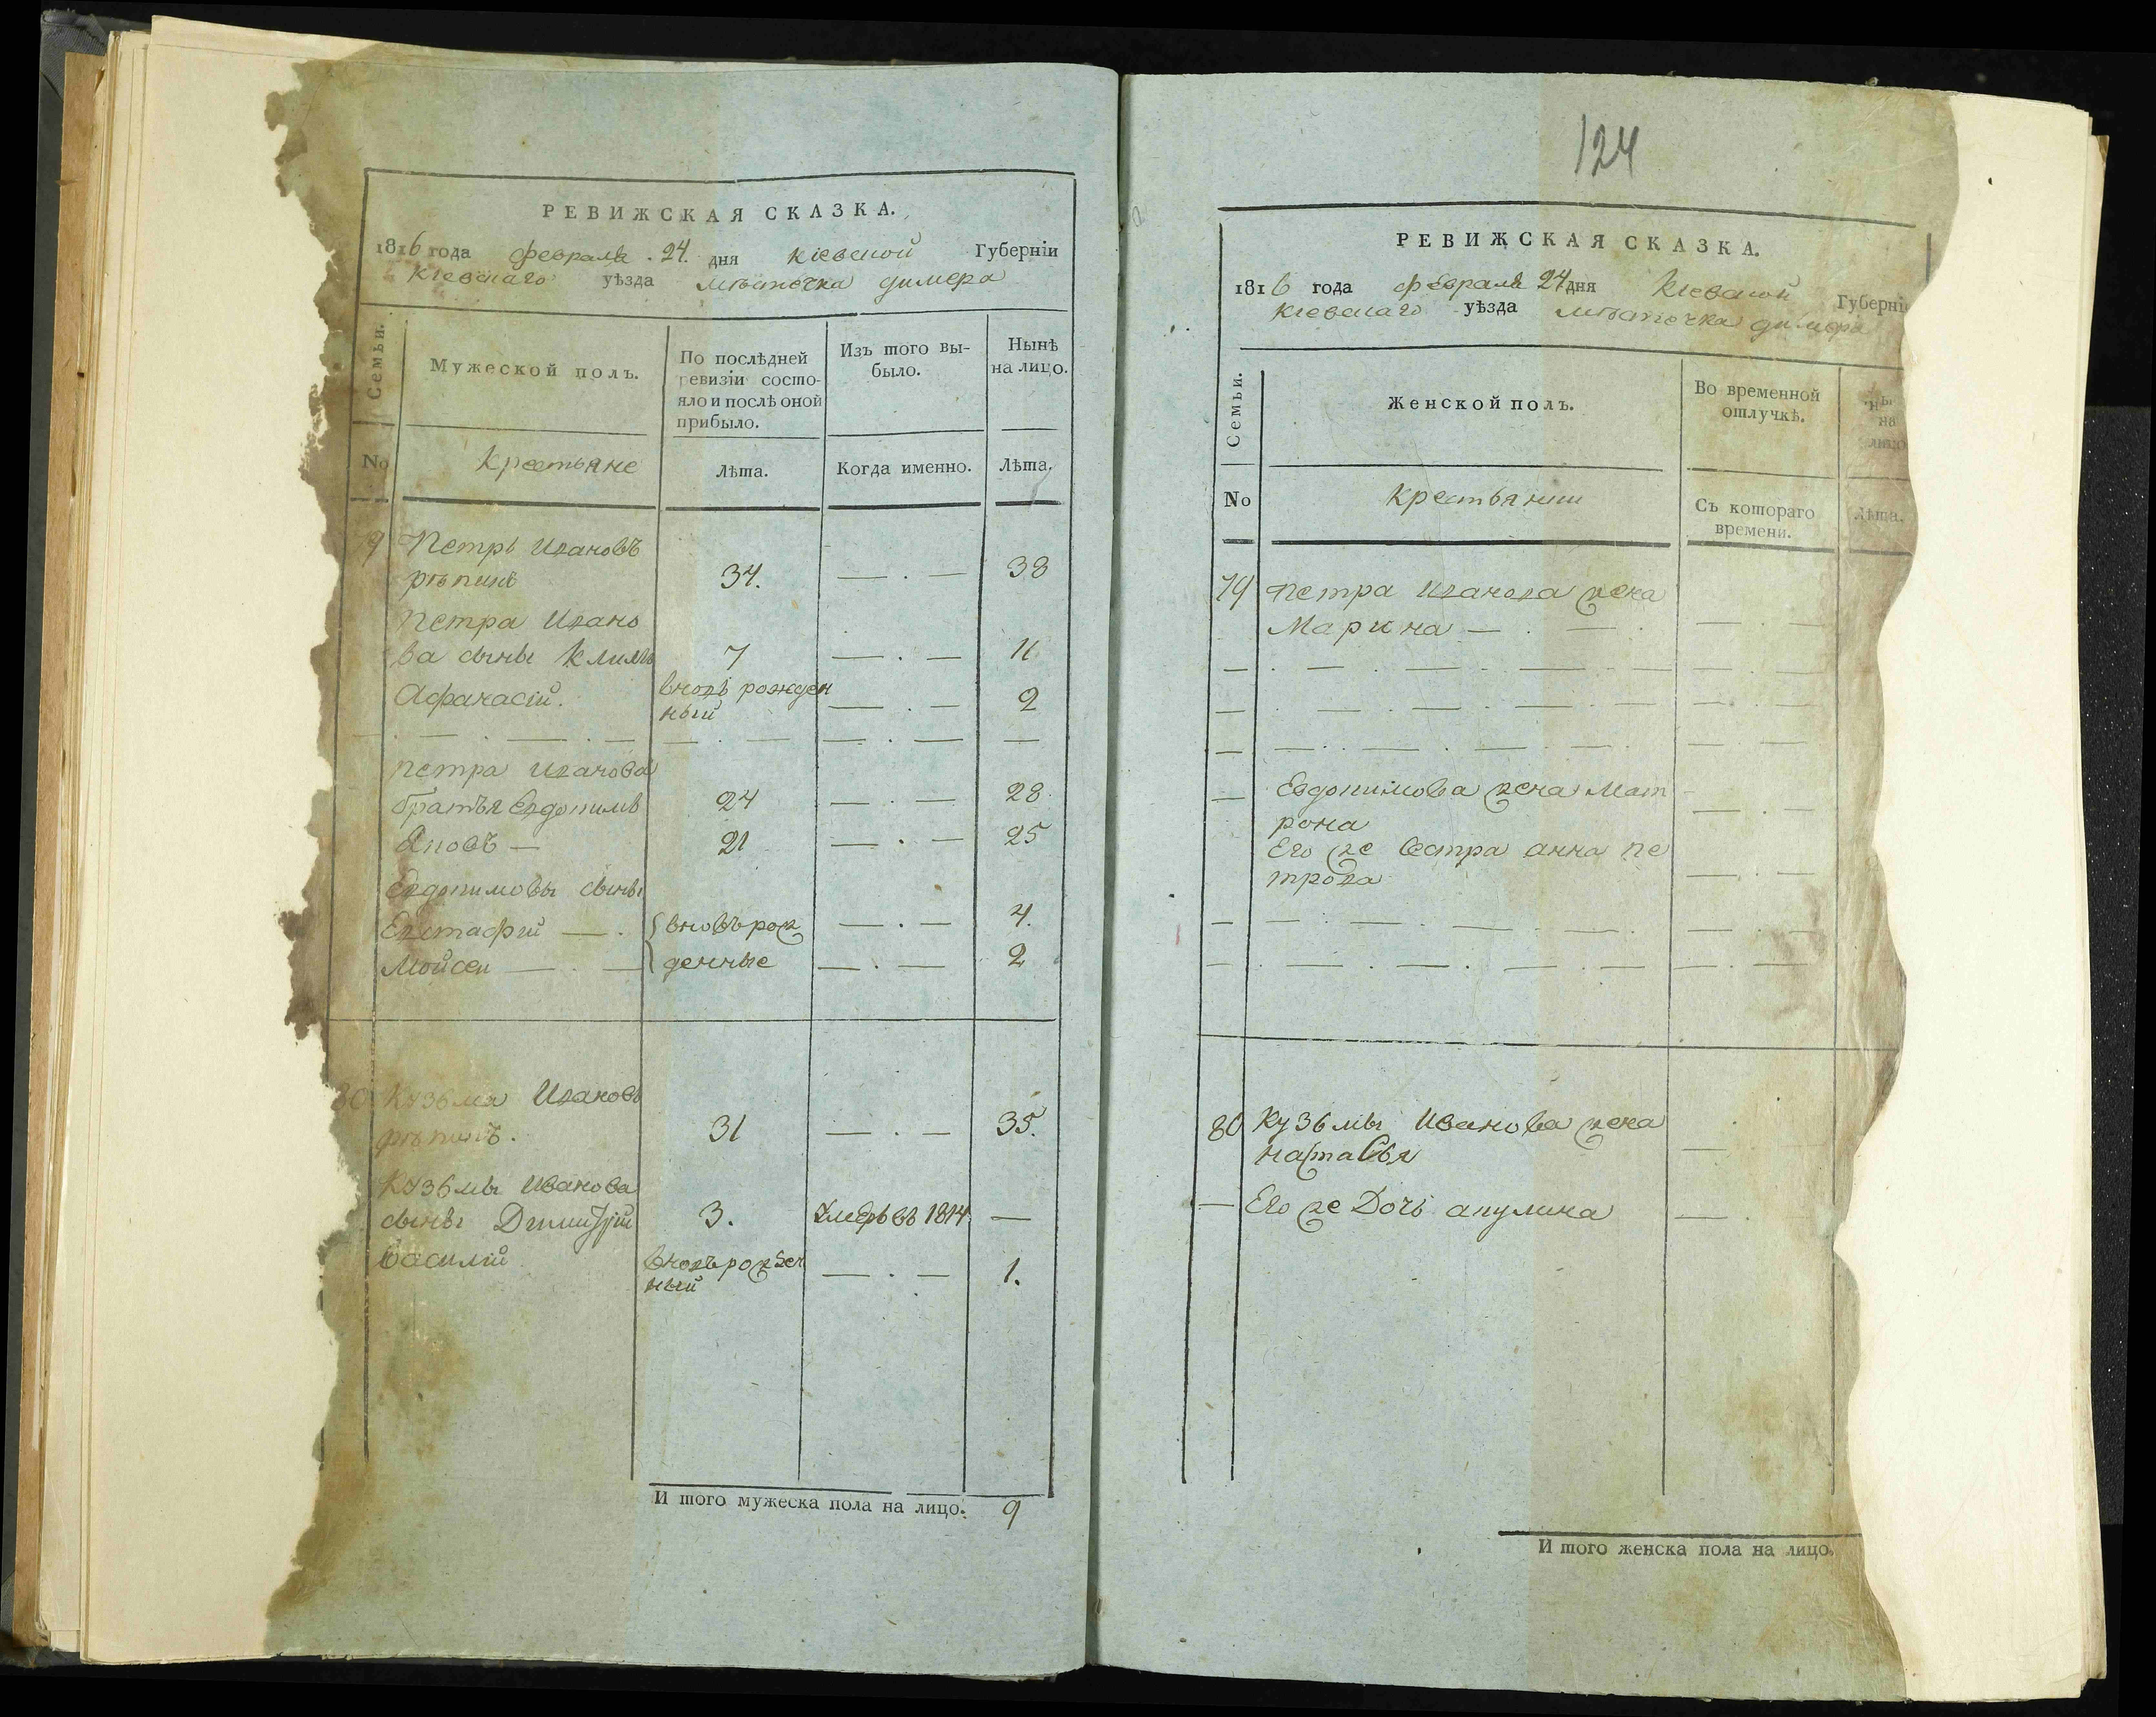 РЕВИЖСКАЯ СКАЗКА.
1816 года февраля 24. дня Кіевской Губерніи
Кіевскаго уѣзда мѣстечка димера
Семьи.
Мужеской полъ.
По послѣдней ревизіи состо-
яло и послѣ оной
прибыло.
Изъ того вы-
было.
Нынѣ
на лицо.
No
Крестьяне
Лѣта.
Когда именно.
Лѣта.
79 Петръ Ивановъ
рѣпинъ 34. — . — 38
Петра Ивано
ва сыны Климъ 7 — . — 11
Афанасій. вновь рожден
ный — . — 2
Петра Иванова
братья Евдокимъ 24 — . — 28
Яковъ — 21 — . — 25
Евдокимовы сыны
Евстафий — . вновърож — . — 4.
Мойсеи — . — денные — . — 2
80 Кузьма Ивановъ
рѣпинъ. 31 — . — 35.
Кузьмы Иванова
сыны Димитрій 3. умеръ въ 1814 —
Василій вновърожден
ный — . — 1.
И того мужеска пола на лицо. 9
124
РЕВИЖСКАЯ СКАЗКА.
1816 года февраля 24 дня Кіевской Губерні
Кіевскаго уѣзда мѣстечка димера
Семьи.
Женской полъ.
Во временной
отлучкѣ.
на
лицо
No
Крестьянки
Съ котораго
времени.
Лѣта.
79 Петра Иванова жена
Марина — . — .
Евдокимова жена Мат
рона
Его же сестра анна пе
трова
80 Кузьмы Иванова жена
настасья
— Его же Дочь акулина
И того женска пола на лицо.